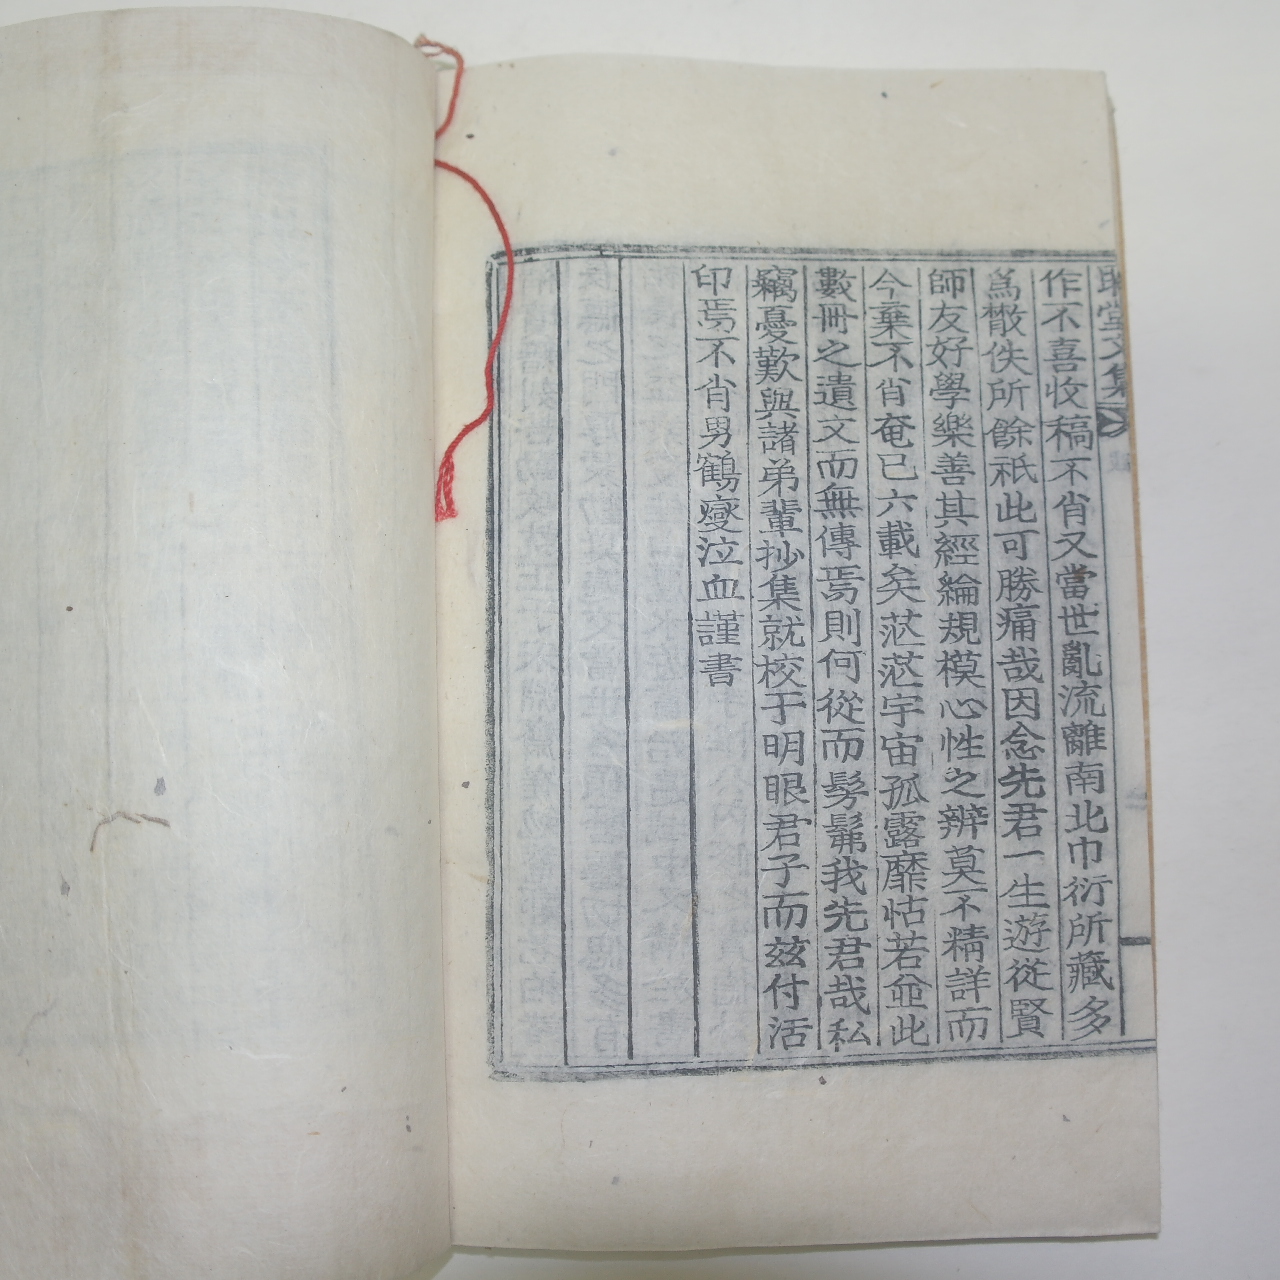 堂文集
作不喜收稿不肖又當世亂流離南北巾衍所藏多
爲散佚所餘祇此可勝痛哉因念先君一生遊從賢
師友好學樂善其經綸規模心性之辨莫不精詳而
今棄不肖奄已六載矣茫茫宇宙孤露靡怙若並此
數冊之遺文而無傳焉則何從而髣髴我先君哉私
竊憂歎與諸弟輩抄集就校于明眼君子而玆付活
印焉不肖男鶴燮泣血謹書